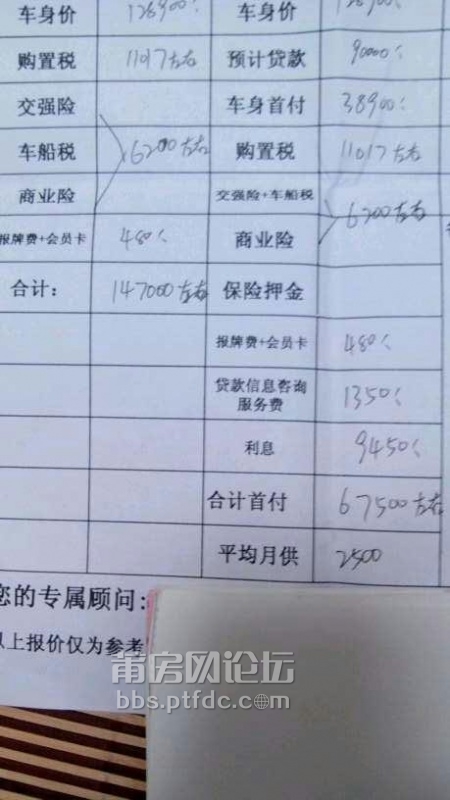 车身价 128900 车身价 128900
购置税 11017左右 预计贷款 90000
交强险 车身首付 38900
车船税 6200左右 购置税 11017左右
商业险 交强险+车船税 6200左右
报牌费+会员卡 480 商业险
合计: 147000左右 保险押金
报牌费+会员卡 480
贷款信息咨询
服务费 1350
利息 9450
合计首付 67500左右
平均月供 2500
您的专属顾问:
以上报价仅为参考
莆房网论坛
bbs.ptfdc.com